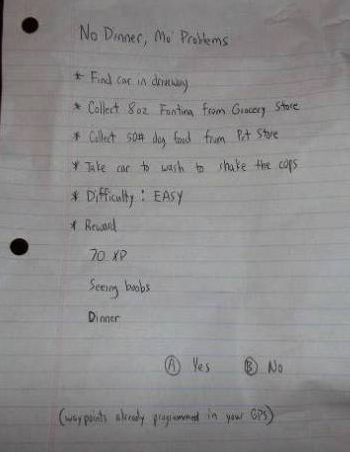 No Dinner, Mo' Problems
* Find car in driveway
* Collect 8oz Fontina from Grocery Store
* Collect 50# dog food from Pet Store
* Take car to wash to shake the cops
* Difficulty: EASY
* Reward
70 XP
Seeing boobs
Dinner
Ⓐ Yes Ⓑ No
(waypoints already programmed in your GPS)